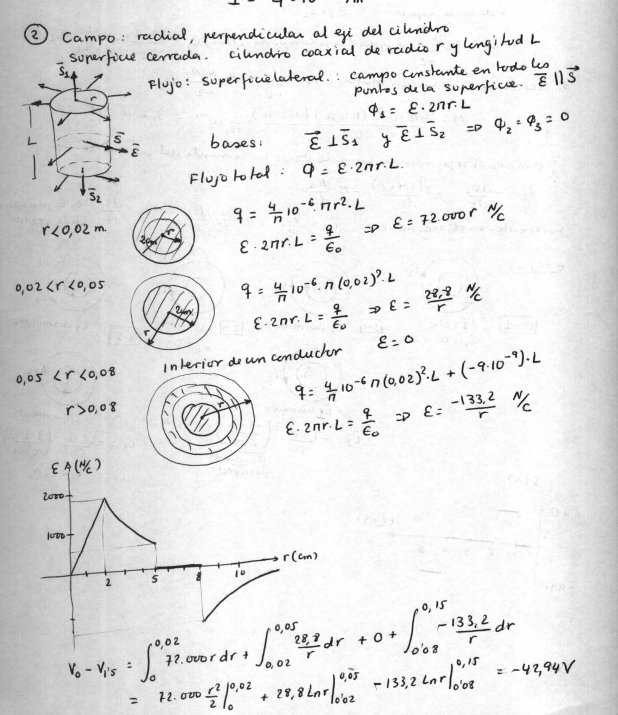 ② Campo: radial, perpendicular al eje del cilindro
Superficie cerrada. cilindro coaxial de radio r y longitud L
Flujo: Superficie lateral.: campo constante en todo los
puntos de la superficie. E⃗ ∥ S⃗
Φ₁ = ε·2πr·L
bases: E⃗ ⊥ S⃗₁ y E⃗ ⊥ S⃗₂ ⇒ Φ₂ = Φ₃ = 0
Flujo total: Φ = ε·2πr·L.
S⃗₁
r
L
S⃗
E⃗
S⃗₂
r<0,02 m.
2cm
r
q = 4/π 10⁻⁶·πr²·L
ε·2πr·L = q/ε₀ ⇒ ε = 72.000r N/C
0,02<r<0,05
2cm
r
q = 4/π 10⁻⁶·π(0,02)²·L
ε·2πr·L = q/ε₀ ⇒ ε = 28,8/r N/C
0,05 <r<0,08
Interior de un conductor ε=0
r>0,08
r
q = 4/π 10⁻⁶ π(0,02)²·L + (-9·10⁻⁹)·L
ε·2πr·L = q/ε₀ ⇒ ε = -133,2/r N/C
ε (N/C)
2000
1000
2 5 8 10
r(cm)
V₀ - V₁'₅ = ∫₀^0,02 72.000r dr + ∫_0,02^0,05 28,8/r dr + 0 + ∫_0'08^0,15 -133,2/r dr
= 72.000 r²/2 |₀^0,02 + 28,8 Ln r |_0'02^0,05 - 133,2 Ln r |_0'08^0,15 = -42,94V